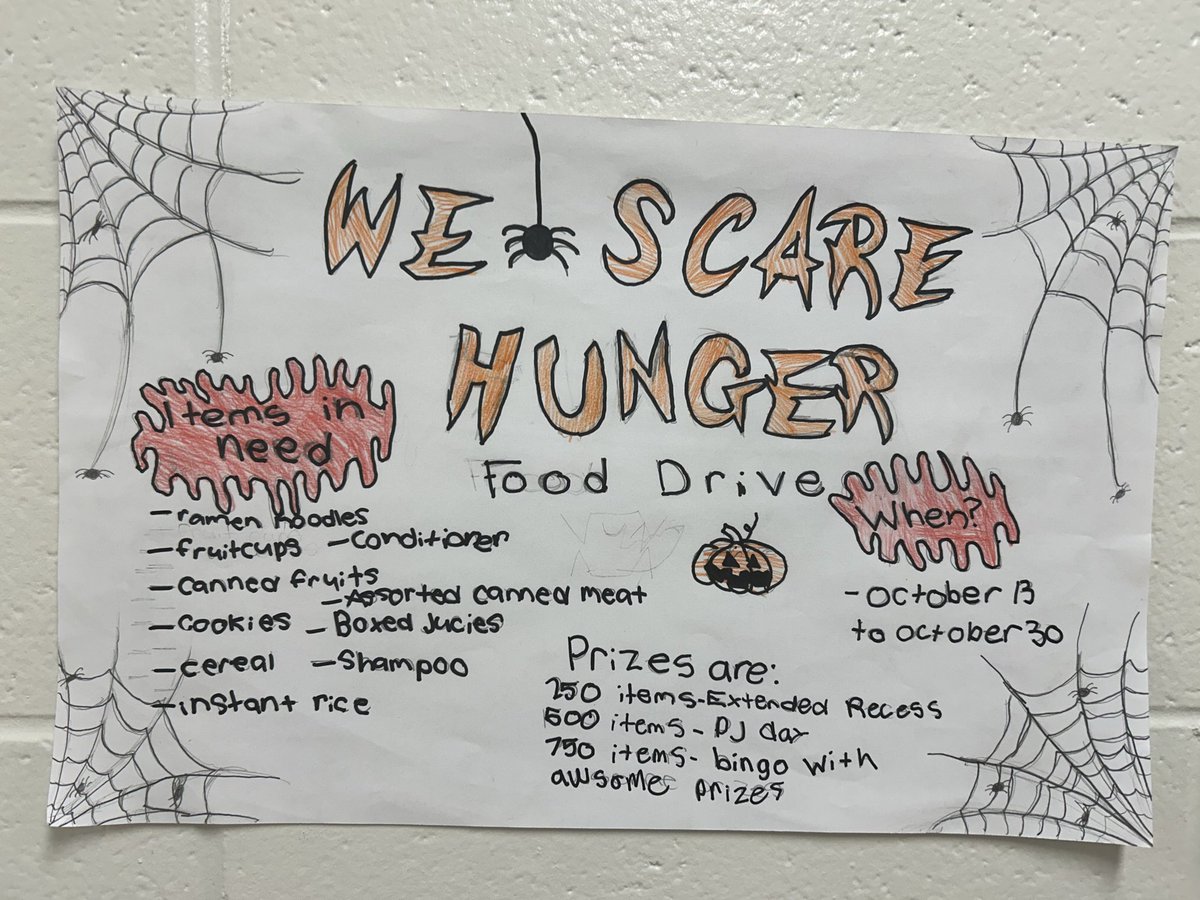 WE SCARE
HUNGER
Food Drive
items in
need
-ramen noodles
-fruitcups
-canned fruits
-cookies
-cereal
-instant rice
-Conditioner
-Assorted canned meat
-Boxed Jucies
-Shampoo
When?
-October 13
to october 30
Prizes are:
250 items-Extended Recess
500 items- PJ day
750 items- bingo with
awsome prizes